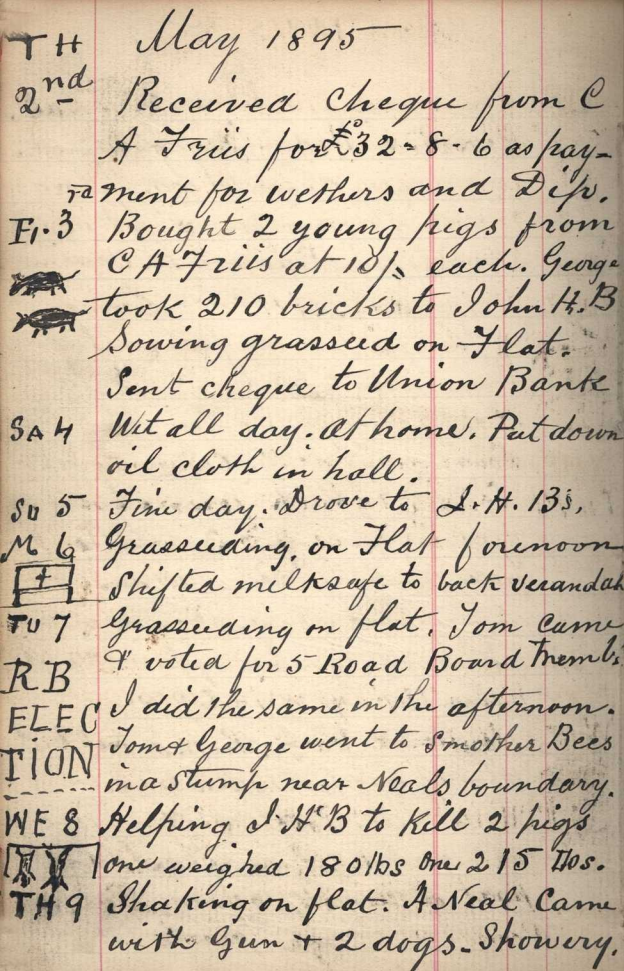 May 1895
TH
2nd Received cheque from C
A Friis for £32-8-6 as pay-
ment for wethers and Dip.
Fr. 3rd Bought 2 young pigs from
C A Friis at 10/- each. George
took 210 bricks to John H. B
Sowing grasseed on Flat.
Sent cheque to Union Bank
SA 4 Wet all day. At home. Put down
oil cloth in hall.
SU 5 Fine day. Drove to J. H. B's.
M 6 Grasseeding, on Flat forenoon
Shifted milksafe to back verandah
TU 7 Grasseeding on flat. Tom came
RB & voted for 5 Road Board Memb.
ELEC I did the same in the afternoon.
TION Tom & George went to smother Bees
in a Stump near Neals boundary.
WE 8 Helping J H B to Kill 2 pigs
one weighed 180 lbs One 215 lbs.
TH 9 Shaking on flat. A Neal Came
with Gun + 2 dogs. Showery.